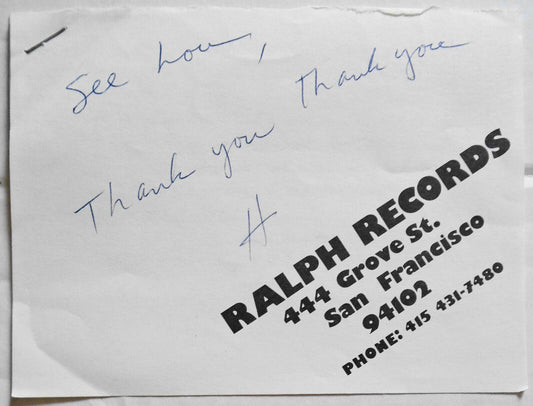 See how,
Thank you
Thank you
H
RALPH RECORDS
444 Grove St.
San Francisco
94102
PHONE: 415 431-7480